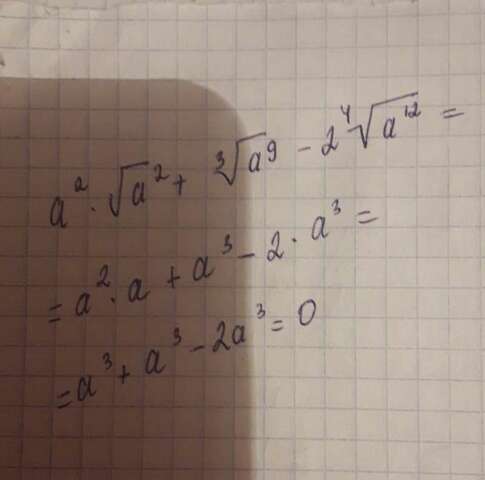 a² · √a² + ³√a⁹ − 2 ⁴√a¹² =
= a² · a + a³ − 2 · a³ =
= a³ + a³ − 2a³ = 0